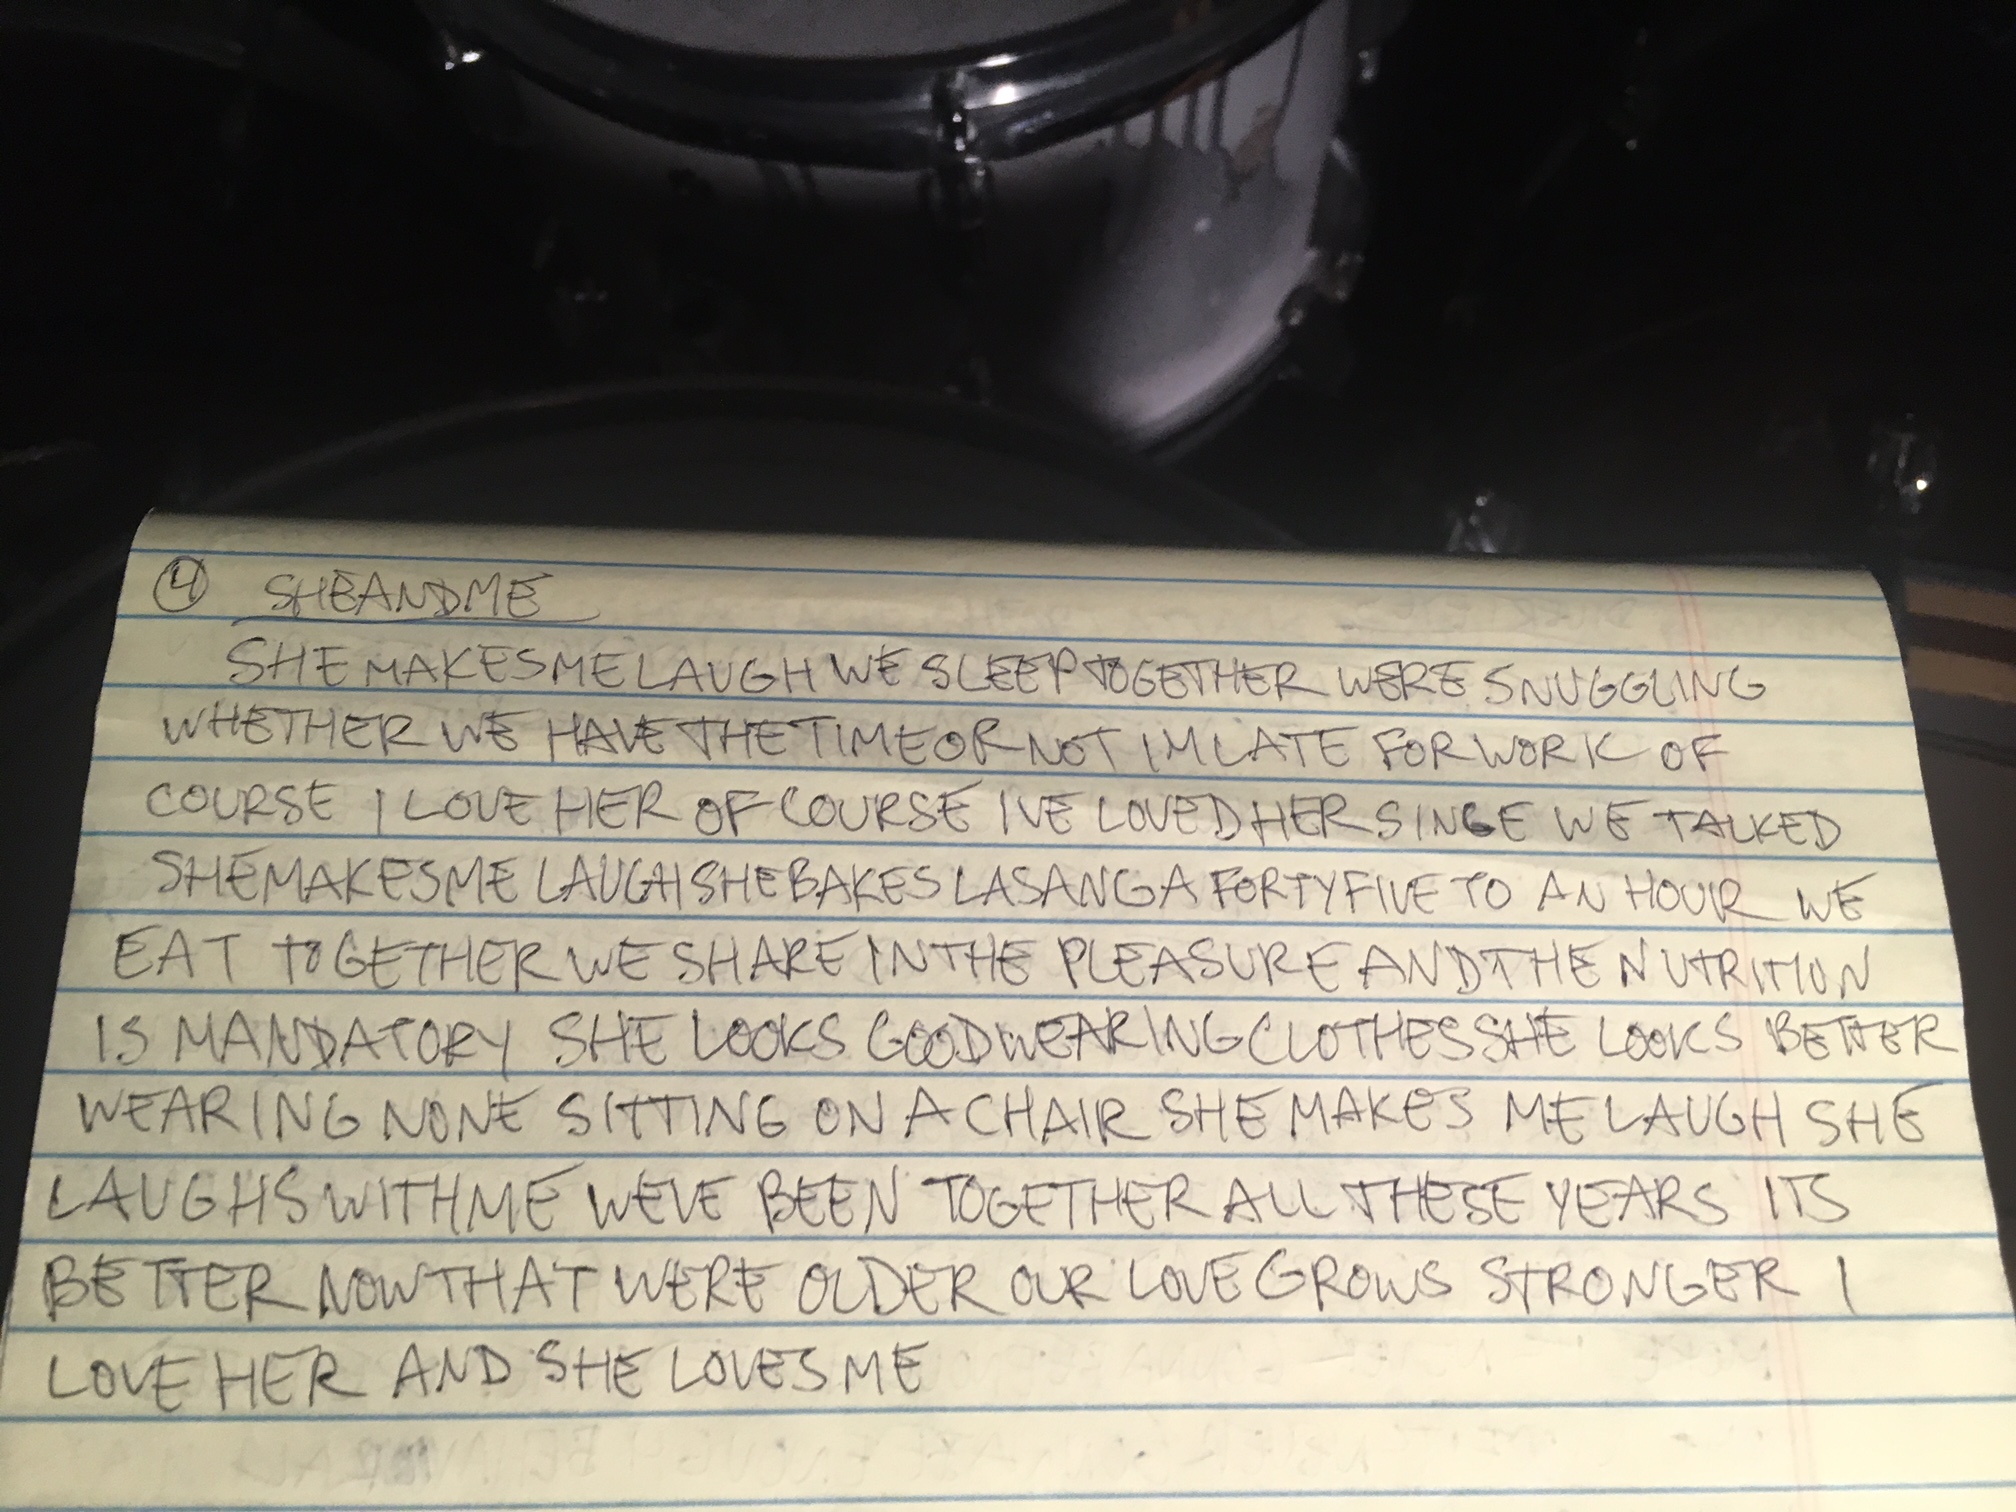 4 SHE AND ME
SHE MAKES ME LAUGH WE SLEEP TOGETHER WERE SNUGGLING
WHETHER WE HAVE THE TIME OR NOT IM LATE FOR WORK OF
COURSE I LOVE HER OF COURSE IVE LOVED HER SINCE WE TALKED
SHE MAKES ME LAUGH SHE BAKES LASANGA FORTY FIVE TO AN HOUR WE
EAT TOGETHER WE SHARE IN THE PLEASURE AND THE NUTRITION
IS MANDATORY SHE LOOKS GOOD WEARING CLOTHES SHE LOOKS BETTER
WEARING NONE SITTING ON A CHAIR SHE MAKES ME LAUGH SHE
LAUGHS WITH ME WEVE BEEN TOGETHER ALL THESE YEARS ITS
BETTER NOW THAT WERE OLDER OUR LOVE GROWS STRONGER I
LOVE HER AND SHE LOVES ME